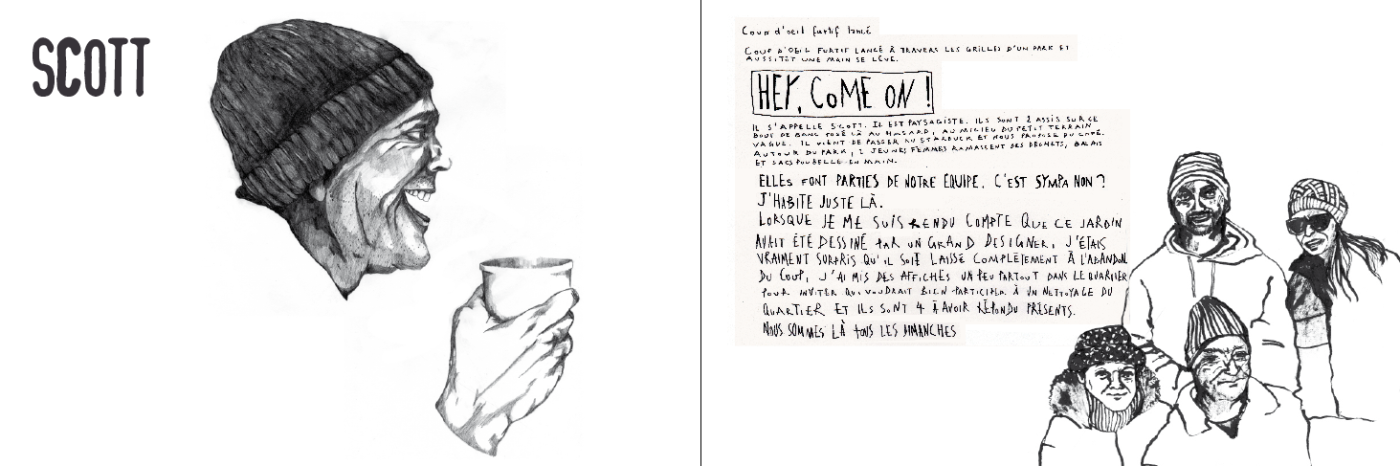 SCOTT
Coup d'oeil furtif lancé
COUP D'OEIL FURTIF LANCÉ À TRAVERS LES GRILLES D'UN PARK ET
AUSSITÔT UNE MAIN SE LÈVE.
HEY, COME ON !
IL S'APPELLE SCOTT. IL EST PAYSAGISTE. ILS SONT 2 ASSIS SUR CE
BOUT DE BANC POSÉ LÀ AU HASARD, AU MILIEU DU PETIT TERRAIN
VAGUE. IL VIENT DE PASSER AU STARBUCK ET NOUS PROPOSE DU CAFÉ.
AUTOUR DU PARK, 2 JEUNES FEMMES RAMASSENT DES DÉCHETS, BALAIS
ET SACS POUBELLE EN MAIN.
ELLES FONT PARTIES DE NOTRE EQUIPE. C'EST SYMPA NON ?
J'HABITE JUSTE LÀ.
LORSQUE JE ME SUIS RENDU COMPTE QUE CE JARDIN
AVAIT ÉTÉ DESSINÉ PAR UN GRAND DESIGNER, J'ÉTAIS
VRAIMENT SURPRIS QU'IL SOIT LAISSÉ COMPLÈTEMENT À L'ABANDON.
DU COUP, J'AI MIS DES AFFICHES UN PEU PARTOUT DANS LE QUARTIER
POUR INVITER QUI VOUDRAIT BIEN PARTICIPER À UN NETTOYAGE DU
QUARTIER ET ILS SONT 4 À AVOIR RÉPONDU PRÉSENTS.
NOUS SOMMES LÀ TOUS LES DIMANCHES